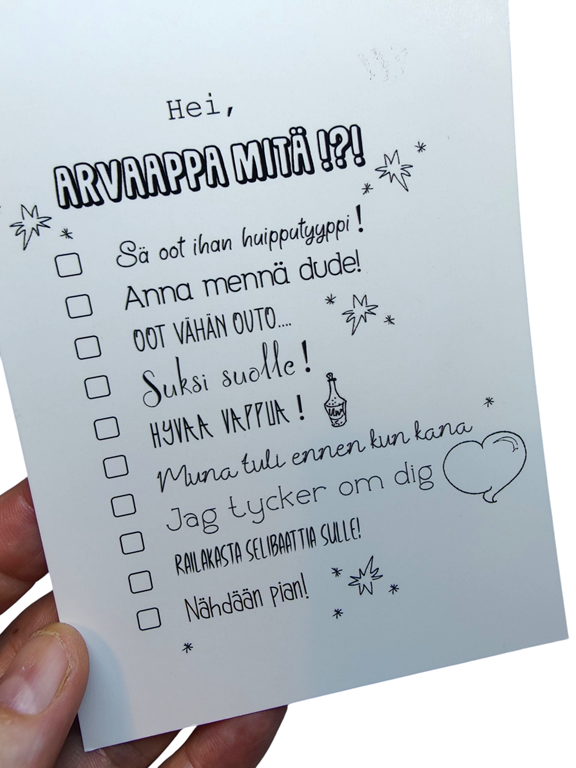 Hei,
ARVAAPPA MITÄ !?!
Sä oot ihan huipputyyppi !
Anna mennä dude!
OOT VÄHÄN OUTO....
Suksi suolle !
HYVAA VAPPUA !
Muna tuli ennen kun kana
Jag tycker om dig
RAILAKASTA SELIBAATTIA SULLE!
Nähdään pian!